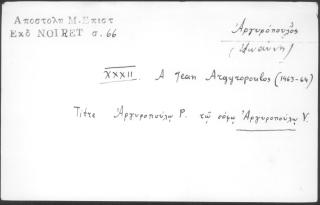 Αποστολη Μ. Επιστ
Εκδ NOIRET σ. 66
Ἀργυρόπουλος
(Ἰωάννη)
XXXII. A Jean Argyropoulos (1463-64)
Titre Ἀργυροπούλῳ Ρ. τῷ σόφῳ Ἀργυροπούλῳ V.